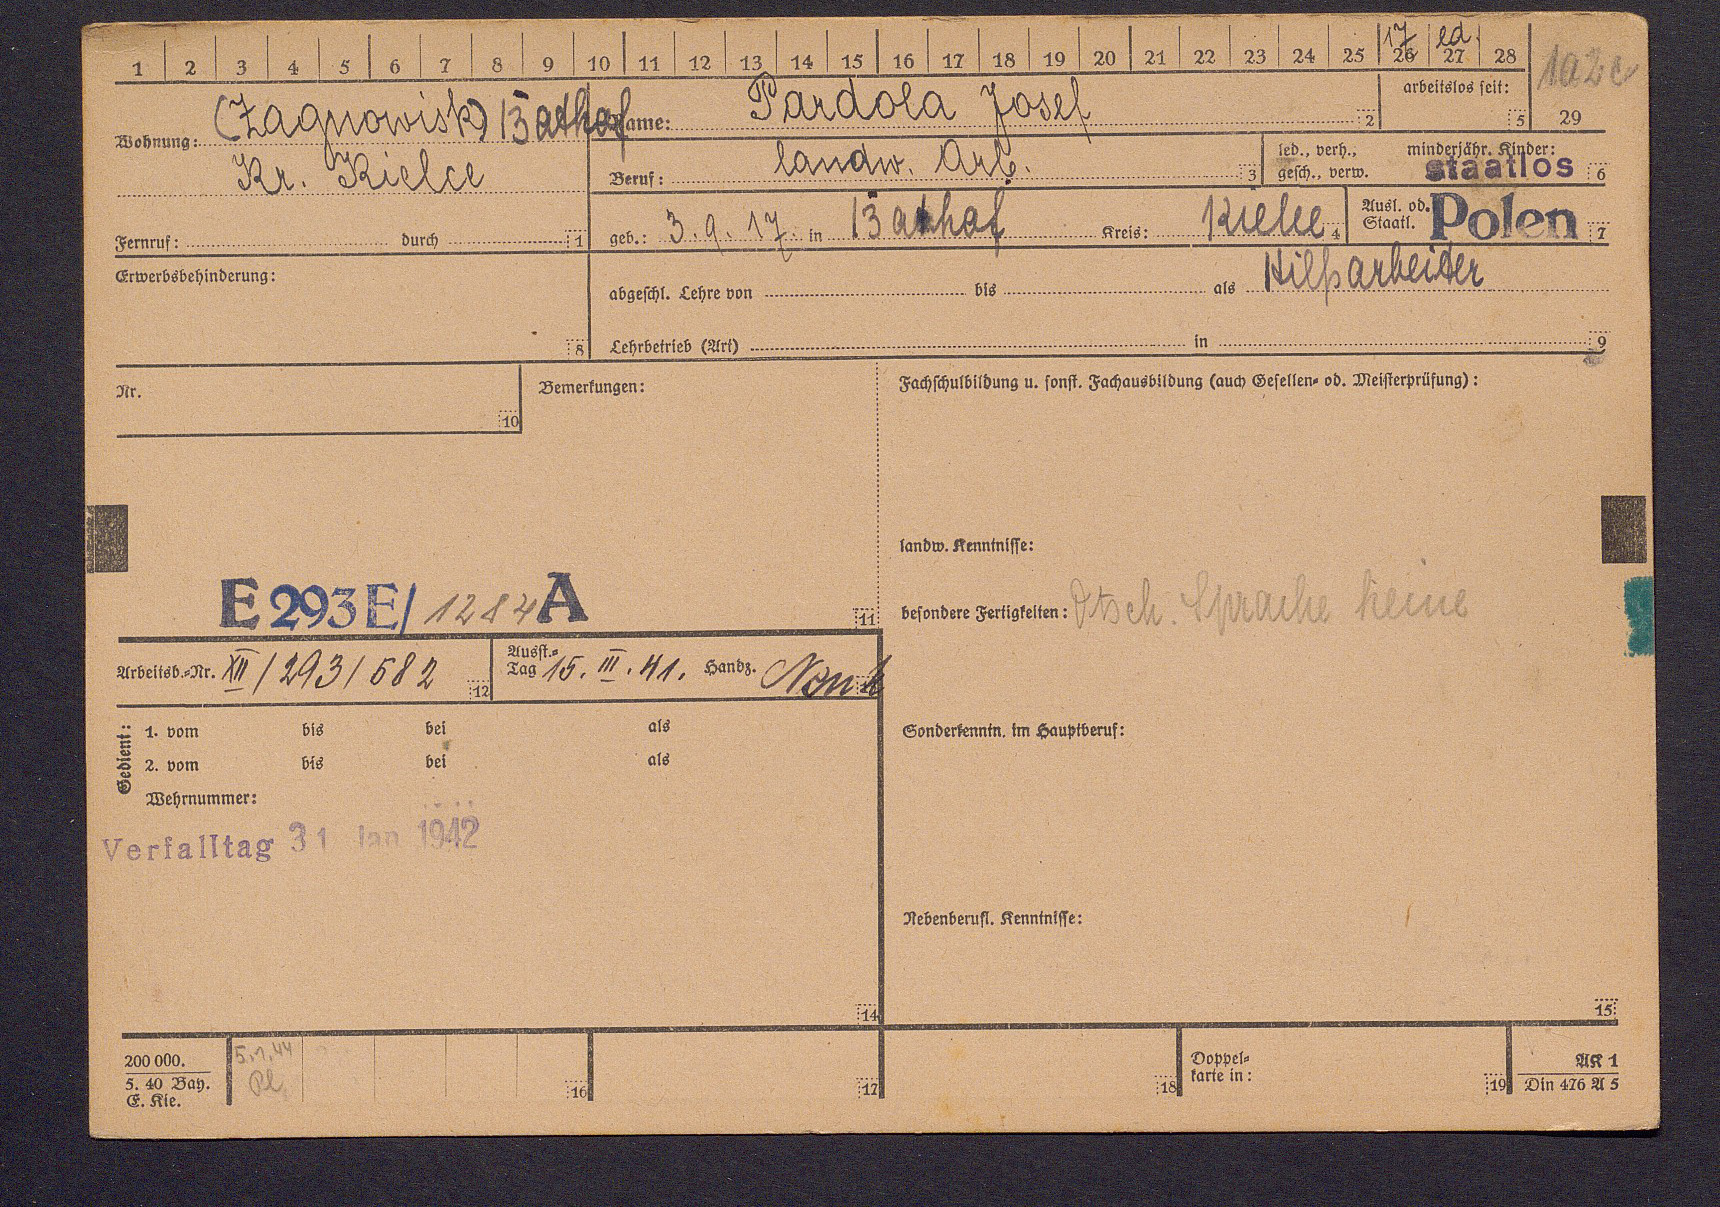 1 2 3 4 5 6 7 8 9 10 11 12 13 14 15 16 17 18 19 20 21 22 23 24 25 26 27 28
17 led.
arbeitslos seit: 5
29
Wohnung: (Zagnowisk)
Kr. Kielce
Fernruf: durch 1
Name: Pardola Josef 2
Beruf: landw. Arb. 3
led., verh., gesch., verw.
minderjähr. Kinder: 6
staatlos
geb.: 3.9.17 in Kreis: Kielce 4
Ausl. od. Staatl. Polen 7
Erwerbsbehinderung:
8
abgeschl. Lehre von bis als Hilfsarbeiter
Lehrbetrieb (Art) in 9
Nr.
10
Bemerkungen:
Fachschulbildung u. sonst. Fachausbildung (auch Gesellen- od. Meisterprüfung):
landw. Kenntnisse:
E 293 E/ 1284 A
11
besondere Fertigkeiten: Dtsch. Sprache keine
Arbeitsb.-Nr. XII/293/582 12
Ausst.-Tag 15. III. 41. Handz.
Gedient:
1. vom bis bei als
2. vom bis bei als
Wehrnummer:
Verfalltag 31 Jan 1942
14
Sonderkenntn. im Hauptberuf:
Nebenberufl. Kenntnisse:
15
200 000.
5. 40 Bay.
E. Kie.
5.1.44
16
17
18
Doppel-
karte in: 19
AK 1
Din 476 A 5